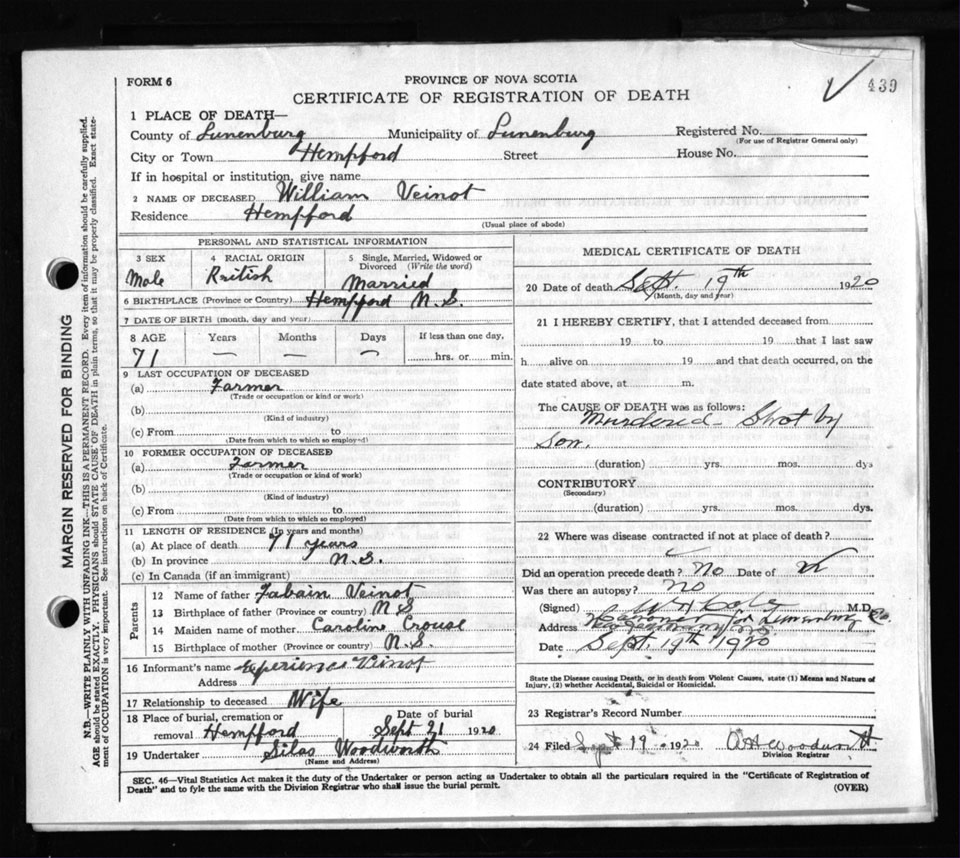 439
FORM 6
PROVINCE OF NOVA SCOTIA
CERTIFICATE OF REGISTRATION OF DEATH
1 PLACE OF DEATH—
County of Lunenburg Municipality of Lunenburg Registered No.
(For use of Registrar General only)
City or Town Hempford Street House No.
If in hospital or institution, give name
2 NAME OF DECEASED William Veinot
Residence Hempford
(Usual place of abode)
PERSONAL AND STATISTICAL INFORMATION
3 SEX
Male
4 RACIAL ORIGIN
British
5 Single, Married, Widowed or
Divorced (Write the word)
Married
6 BIRTHPLACE (Province or Country) Hempford N.S.
7 DATE OF BIRTH (month, day and year)
8 AGE Years Months Days If less than one day,
71 — — — hrs. or min.
9 LAST OCCUPATION OF DECEASED
(a) Farmer
(Trade or occupation or kind or work)
(b)
(Kind of industry)
(c) From to
(Date from which to which so employed)
10 FORMER OCCUPATION OF DECEASED
(a) Farmer
(Trade or occupation or kind of work)
(b)
(Kind of industry)
(c) From to
(Date from which to which so employed)
11 LENGTH OF RESIDENCE (In years and months)
(a) At place of death 71 years
(b) In province N.S.
(c) In Canada (if an immigrant)
Parents
12 Name of father Fabain Veinot
13 Birthplace of father (Province or country) N S
14 Maiden name of mother Caroline Crouse
15 Birthplace of mother (Province or country) N.S.
16 Informant's name Experience Veinot
Address
17 Relationship to deceased Wife
18 Place of burial, cremation or
removal Hempford
Date of burial
Sept 21 1920
19 Undertaker Silas Woodworth
(Name and Address)
MEDICAL CERTIFICATE OF DEATH
20 Date of death Sept. 19th 1920
(Month, day and year)
21 I HEREBY CERTIFY, that I attended deceased from
19 to 19 that I last saw
h alive on 19 and that death occurred, on the
date stated above, at m.
The CAUSE OF DEATH was as follows:
Murdered – Shot by
son.
(duration) yrs. mos. dys
CONTRIBUTORY
(Secondary)
(duration) yrs. mos. dys.
22 Where was disease contracted if not at place of death?
Did an operation precede death? No Date of
Was there an autopsy? No
(Signed) M.D.
Address Coroner for Lunenburg Co.
Date Sept. 19th 1920
State the Disease causing Death, or in death from Violent Causes, state (1) Means and Nature of
Injury, (2) whether Accidental, Suicidal or Homicidal.
23 Registrar's Record Number
24 Filed Sept 19 1920 Woodworth
Division Registrar
SEC. 46—Vital Statistics Act makes it the duty of the Undertaker or person acting as Undertaker to obtain all the particulars required in the "Certificate of Registration of
Death" and to fyle the same with the Division Registrar who shall issue the burial permit.
(OVER)
MARGIN RESERVED FOR BINDING
N.B.—WRITE PLAINLY WITH UNFADING INK—THIS IS A PERMANENT RECORD. Every item of information should be carefully supplied.
AGE should be stated EXACTLY. PHYSICIANS should STATE CAUSE OF DEATH in plain terms, so that it may be properly classified. Exact state-
ment of OCCUPATION is very important. See instructions on back of Certificate.